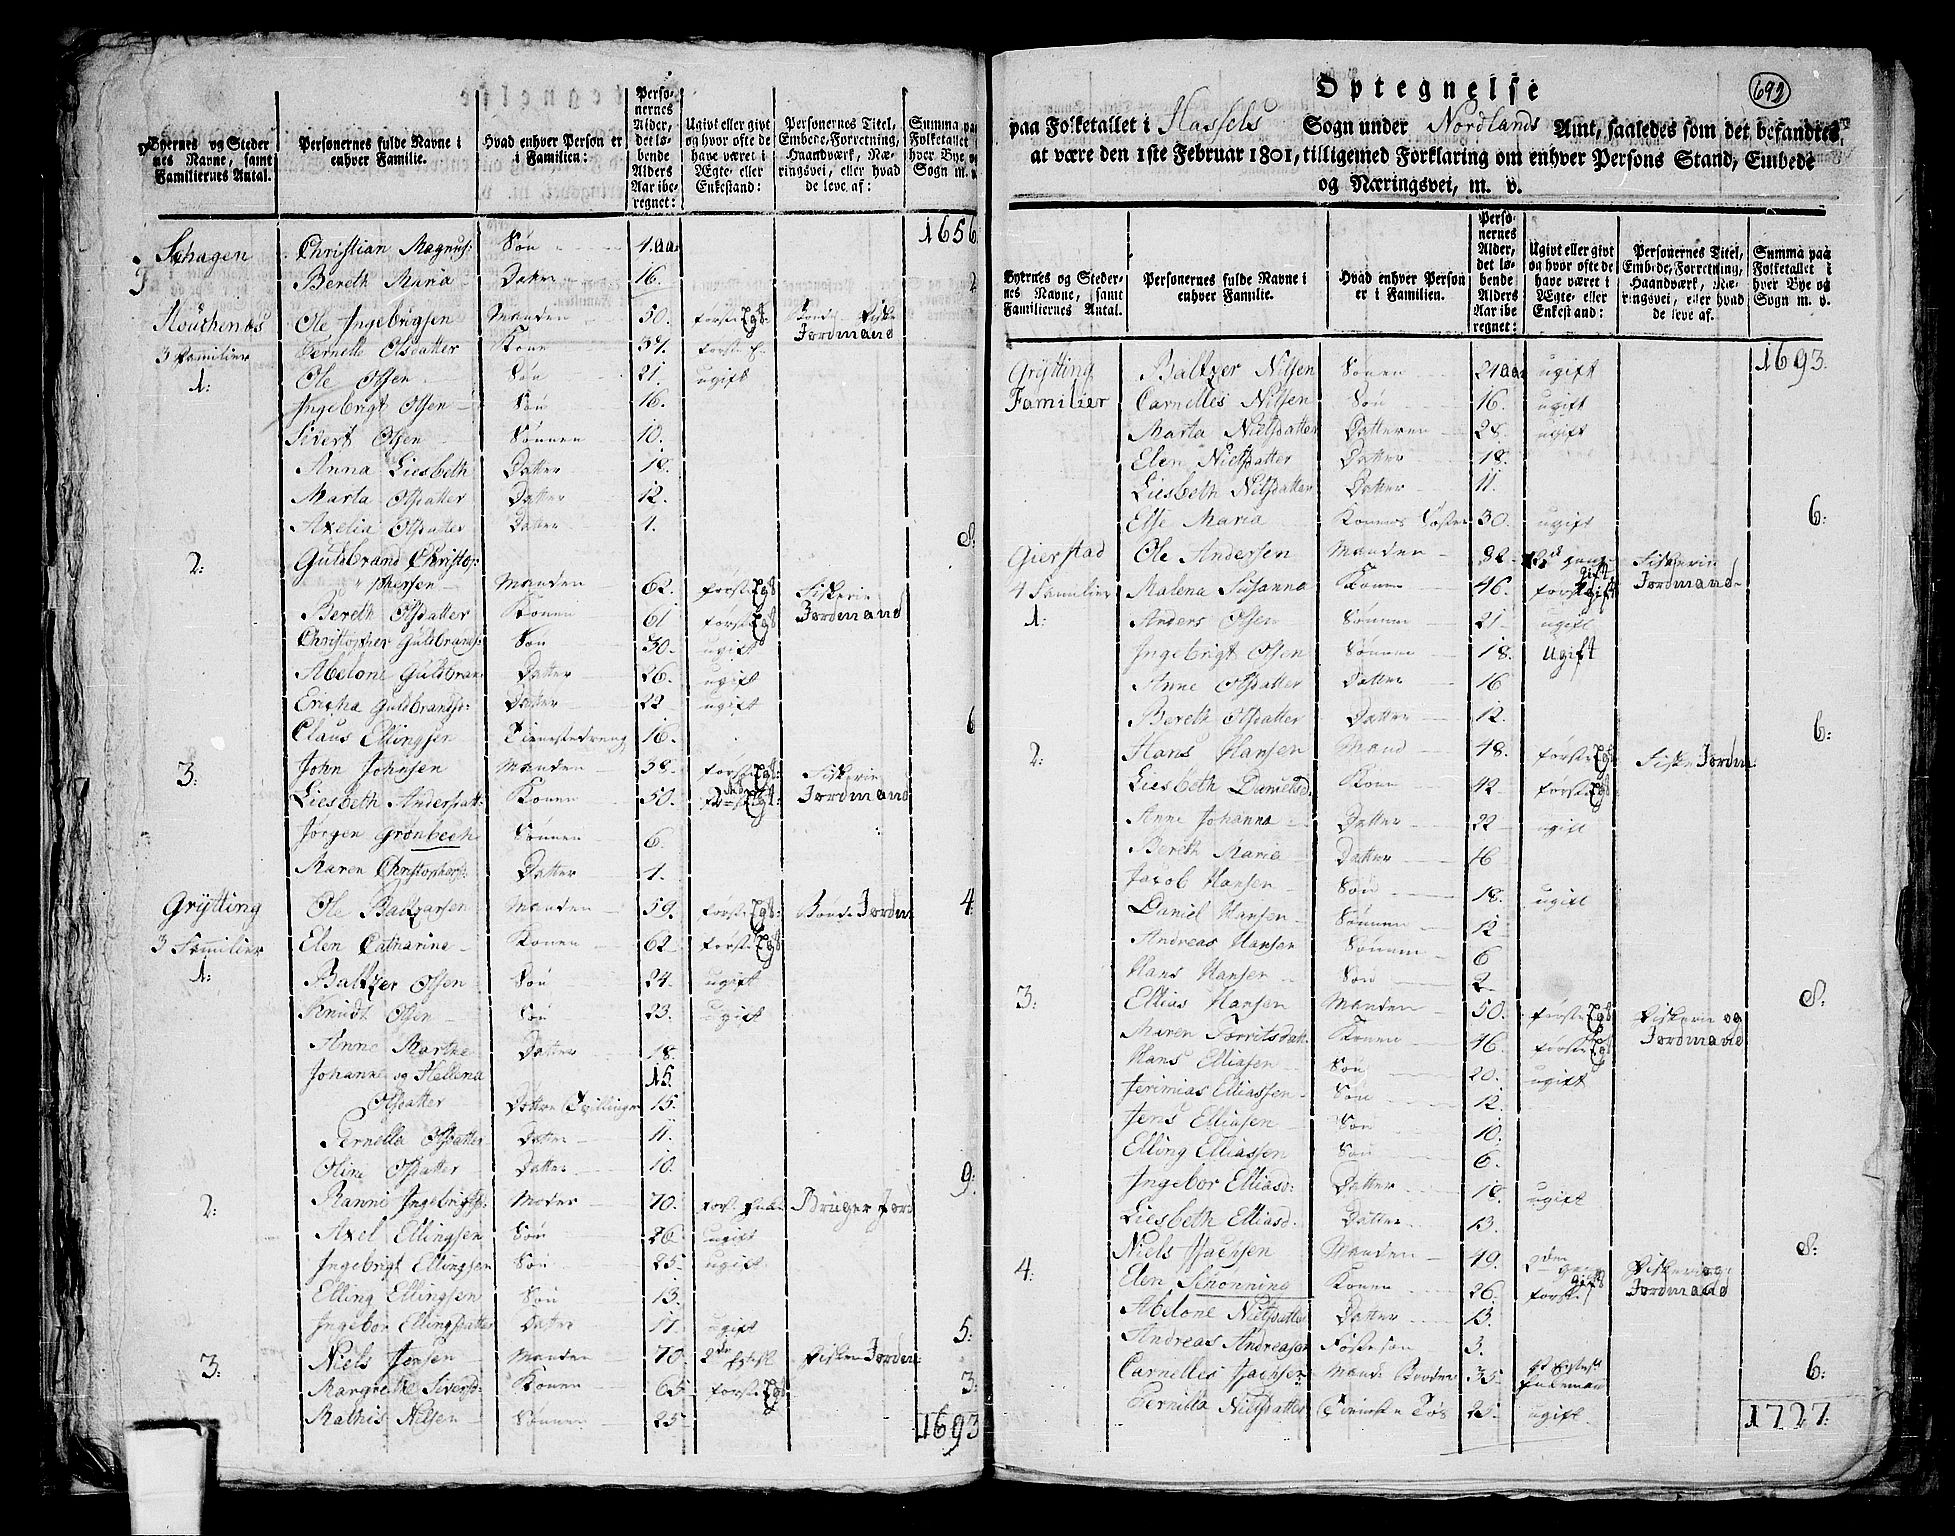 Byernes og Steder
nes Navne, samt
Familiernes Antal.
Personernes fulde Navne i
enhver Familie.
Hvad enhver Person er
i Familien:
Perso-
nernes
Alder,
det lø-
bende
Alders
Aar ibe-
regnet:
Ugivt eller givt
og hvor ofte de
have været i
Ægte- eller
Enkestand:
Personernes Titel,
Embede, Forretning,
Haandværk, Næ-
ringsvei, eller hvad
de leve af:
Summa paa
Folketallet
hver Bye
Sogn m. v.
1656
Schagen Christian Magnus: Søn 1.aar
Bereth Maria Datter 16. 2
Ole Ingebrigsen Manden 50. første Egt: Bonde
3 Familier Pernelle Olsdatter Kone 57. første Jordmand
1: Ole Olsen Søn 21. ugift
Ingebrigt Olsen Søn 16.
Sivert Olsen Sønnen 10.
Anna Liesbeth Datter 18.
Marta Olsdatter Datter 12.
Axelia Olsdatter Datter 4. 8.
2: Guldbrand Christop:
phersen Manden 62. første Egt Fiskerie
Bereth Olsdatter Konen 61 første Egt Jordmand
Christopher Guldbrands: Søn 30. ugift
Abelone Guldbran: Datter 26. ugift
Ericha Guldbrandsd: Datter 22 ugift
Claus Ellingsen Tienestedreng 16. 6
3: John Johnsen Manden 58. første Egt: Fiskerie
Liesbeth Andersdatt: Konen 50. Egt: Jordmand
Jørgen Grønbech Sønnen 6.
Maren Christophersd: Datter 1.
Grytting Ole Baltzarsen Manden 59. første Egt: Bonde Jordm 4.
3 Familier Elen Catharina Konen 62 første Egt
1: Baltzer Olsen Søn 24. ugift
Knudt Olsen Søn 23. ugift
Anne Marthe Datter 18.
Johanne og Hellena 15.
Olsdatter Døttre Tvillinger 15.
Pernella Olsdatter Datter 11.
Oline Olsdatter Datter 10. 9.
2: Ranni Ingebrigtsd: Moder 70. Bruger Jord
Axel Ellingsen Søn 26. ugift
Ingebrigt Ellingsen Søn 25. ugift
Elling Ellingsen Søn 13.
Ingebor Ellingsdatter Datter 17. ugift 5:
3: Niels Jensen Manden 70. 2den Fisker Jordm
Margrethe Siversd: Konen 65. første Egt 3:
Mathis Nilsen Sønnen 25.
1693
693
Optegnelse
paa Folketallet i Hassels Sogn under Nordlands Amt, saaledes som det befandtes
at være den 1ste Februar 1801, tilligemed Forklaring om enhver Persons Stand, Embede
og Næringsvei, m. v.
Byernes og Steder-
nes Navne, samt
Familiernes Antal.
Personernes fulde Navne i
enhver Familie.
Hvad enhver Person
er i Familien.
Perso-
nernes
Alder,
det lø-
bende
Alders
Aar ibe-
regnet:
Ugivt eller givt
og hvor ofte de
have været i
Ægte- eller
Enkestand:
Personernes Titel,
Embede, Forretning,
Haandværk, Næ-
ringsvei, eller hvad
de leve af.
Summa paa
Folketallet i
hver Bye og
Sogn m. v.
1693.
Grytting Baltzer Nilsen Sønen 21aar ugift
Familier Carnelles Nilsen Søn 16. ugift
Marta Nielsdatter Datteren 28. ugift
Elen Nielsdatter Datter 18.
Liesbeth Nilsdatter Datter 11.
Else Maria Konens Søster 30. ugift 6:
Gierstad Ole Andersen Manden gang gift Fiskerie
4 Familier Malena Susanna Konen 46. første gift Jordmand
1: Anders Olsen Sønnen 21 ugift
Ingebrigt Olsen Sønnen 18. Ugift
Anne Olsdatter Datter 16
Bereth Olsdatter Datter 12. 6:
2: Hans Hansen Mand 48. første Egt Fisker Jordm:
Liesbeth Danielsd: Kone 42. første Egt
Anne Johanna Datter 22 ugift
Bereth Maria Datter 16
Jacob Hansen Søn 18. ugift
Daniel Hansen Sønnen 12
Andreas Hansen Sønnen 6
Hans Hansen Søn 2 8:
3: Ellias Hansen Manden 50. første Egt Fiskerie og
Maren Konen 46. første Egt Jordmand
Hans Elliasen Søn 20. ugift
Jerimias Elliassen Søn 12.
Jens Elliasen Søn 10.
Elling Elliassen Søn 6.
Ingebor Elliasd: Datter 18. ugift
Liesbeth Elliasd. Datter 13. 8:
4: Niels Isachsen Manden 49. 2den gang gift Fiskerie og
Elen Simonning Konen 26. første Jordmand
Abelone Nielsdatter Datter 13.
Andreas Andreasen Fostersøn 3.
Carnelles Isachsen Mands Broder 35. Enkemand 6:
Pernilla Nielsdatter 25. ugift
1727.